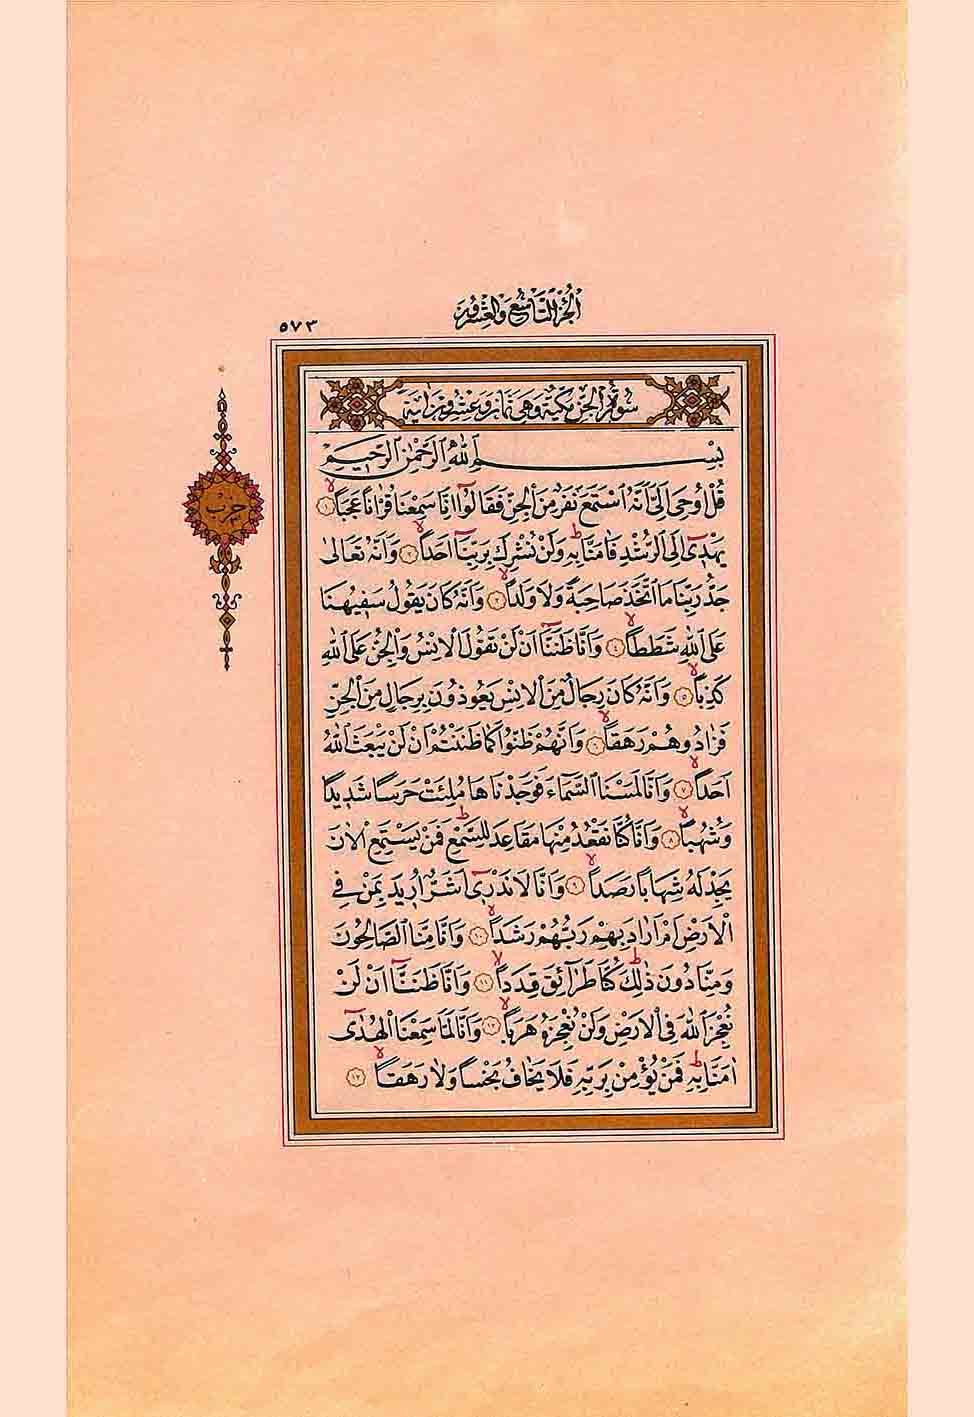 الجزء التاسع والعشرون
٥٧٣
سورة الجن مكية وهي ثمان وعشرون اية
بِسْمِ اللّٰهِ الرَّحْمٰنِ الرَّحٖيمِ
قُلْ اُوحِيَ اِلَيَّ اَنَّهُ اسْتَمَعَ نَفَرٌ مِنَ الْجِنِّ فَقَالُٓوا اِنَّا سَمِعْنَا قُرْاٰنًا عَجَبًاۙ ﴿١﴾
يَهْدٖٓي اِلَى الرُّشْدِ فَاٰمَنَّا بِهٖۜ وَلَنْ نُشْرِكَ بِرَبِّنَٓا اَحَدًاۙ ﴿٢﴾ وَاَنَّهُ تَعَالٰى
جَدُّ رَبِّنَا مَا اتَّخَذَ صَاحِبَةً وَلَا وَلَدًاۙ ﴿٣﴾ وَاَنَّهُ كَانَ يَقُولُ سَفٖيهُنَا
عَلَى اللّٰهِ شَطَطًاۙ ﴿٤﴾ وَاَنَّا ظَنَنَّٓا اَنْ لَنْ تَقُولَ الْاِنْسُ وَالْجِنُّ عَلَى اللّٰهِ
كَذِبًاۙ ﴿٥﴾ وَاَنَّهُ كَانَ رِجَالٌ مِنَ الْاِنْسِ يَعُوذُونَ بِرِجَالٍ مِنَ الْجِنِّ
فَزَادُوهُمْ رَهَقًاۙ ﴿٦﴾ وَاَنَّهُمْ ظَنُّوا كَمَا ظَنَنْتُمْ اَنْ لَنْ يَبْعَثَ اللّٰهُ
اَحَدًاۙ ﴿٧﴾ وَاَنَّا لَمَسْنَا السَّمَٓاءَ فَوَجَدْنَاهَا مُلِئَتْ حَرَسًا شَدٖيدًا
وَشُهُبًاۙ ﴿٨﴾ وَاَنَّا كُنَّا نَقْعُدُ مِنْهَا مَقَاعِدَ لِلسَّمْعِۜ فَمَنْ يَسْتَمِعِ الْاٰنَ
يَجِدْ لَهُ شِهَابًا رَصَدًاۙ ﴿٩﴾ وَاَنَّا لَا نَدْرٖٓي اَشَرٌّ اُرٖيدَ بِمَنْ فِي
الْاَرْضِ اَمْ اَرَادَ بِهِمْ رَبُّهُمْ رَشَدًاۙ ﴿١٠﴾ وَاَنَّا مِنَّا الصَّالِحُونَ
وَمِنَّا دُونَ ذٰلِكَۜ كُنَّا طَرَٓائِقَ قِدَدًاۙ ﴿١١﴾ وَاَنَّا ظَنَنَّٓا اَنْ لَنْ
نُعْجِزَ اللّٰهَ فِي الْاَرْضِ وَلَنْ نُعْجِزَهُ هَرَبًاۙ ﴿١٢﴾ وَاَنَّا لَمَّا سَمِعْنَا الْهُدٰٓى
اٰمَنَّا بِهٖۜ فَمَنْ يُؤْمِنْ بِرَبِّهٖ فَلَا يَخَافُ بَخْسًا وَلَا رَهَقًاۙ ﴿١٣﴾
حزب